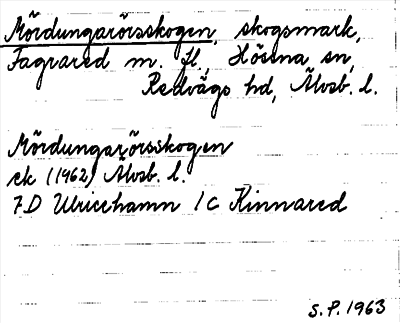 Mördungarörsskogen, skogsmark,
Fagrared m. fl., Hössna sn,
Redvägs hd, Älvsb. l.
Mördungarörsskogen
ek (1962) Älvsb. l.
7D Ulricehamn 1c Kinnared
S.P. 1963